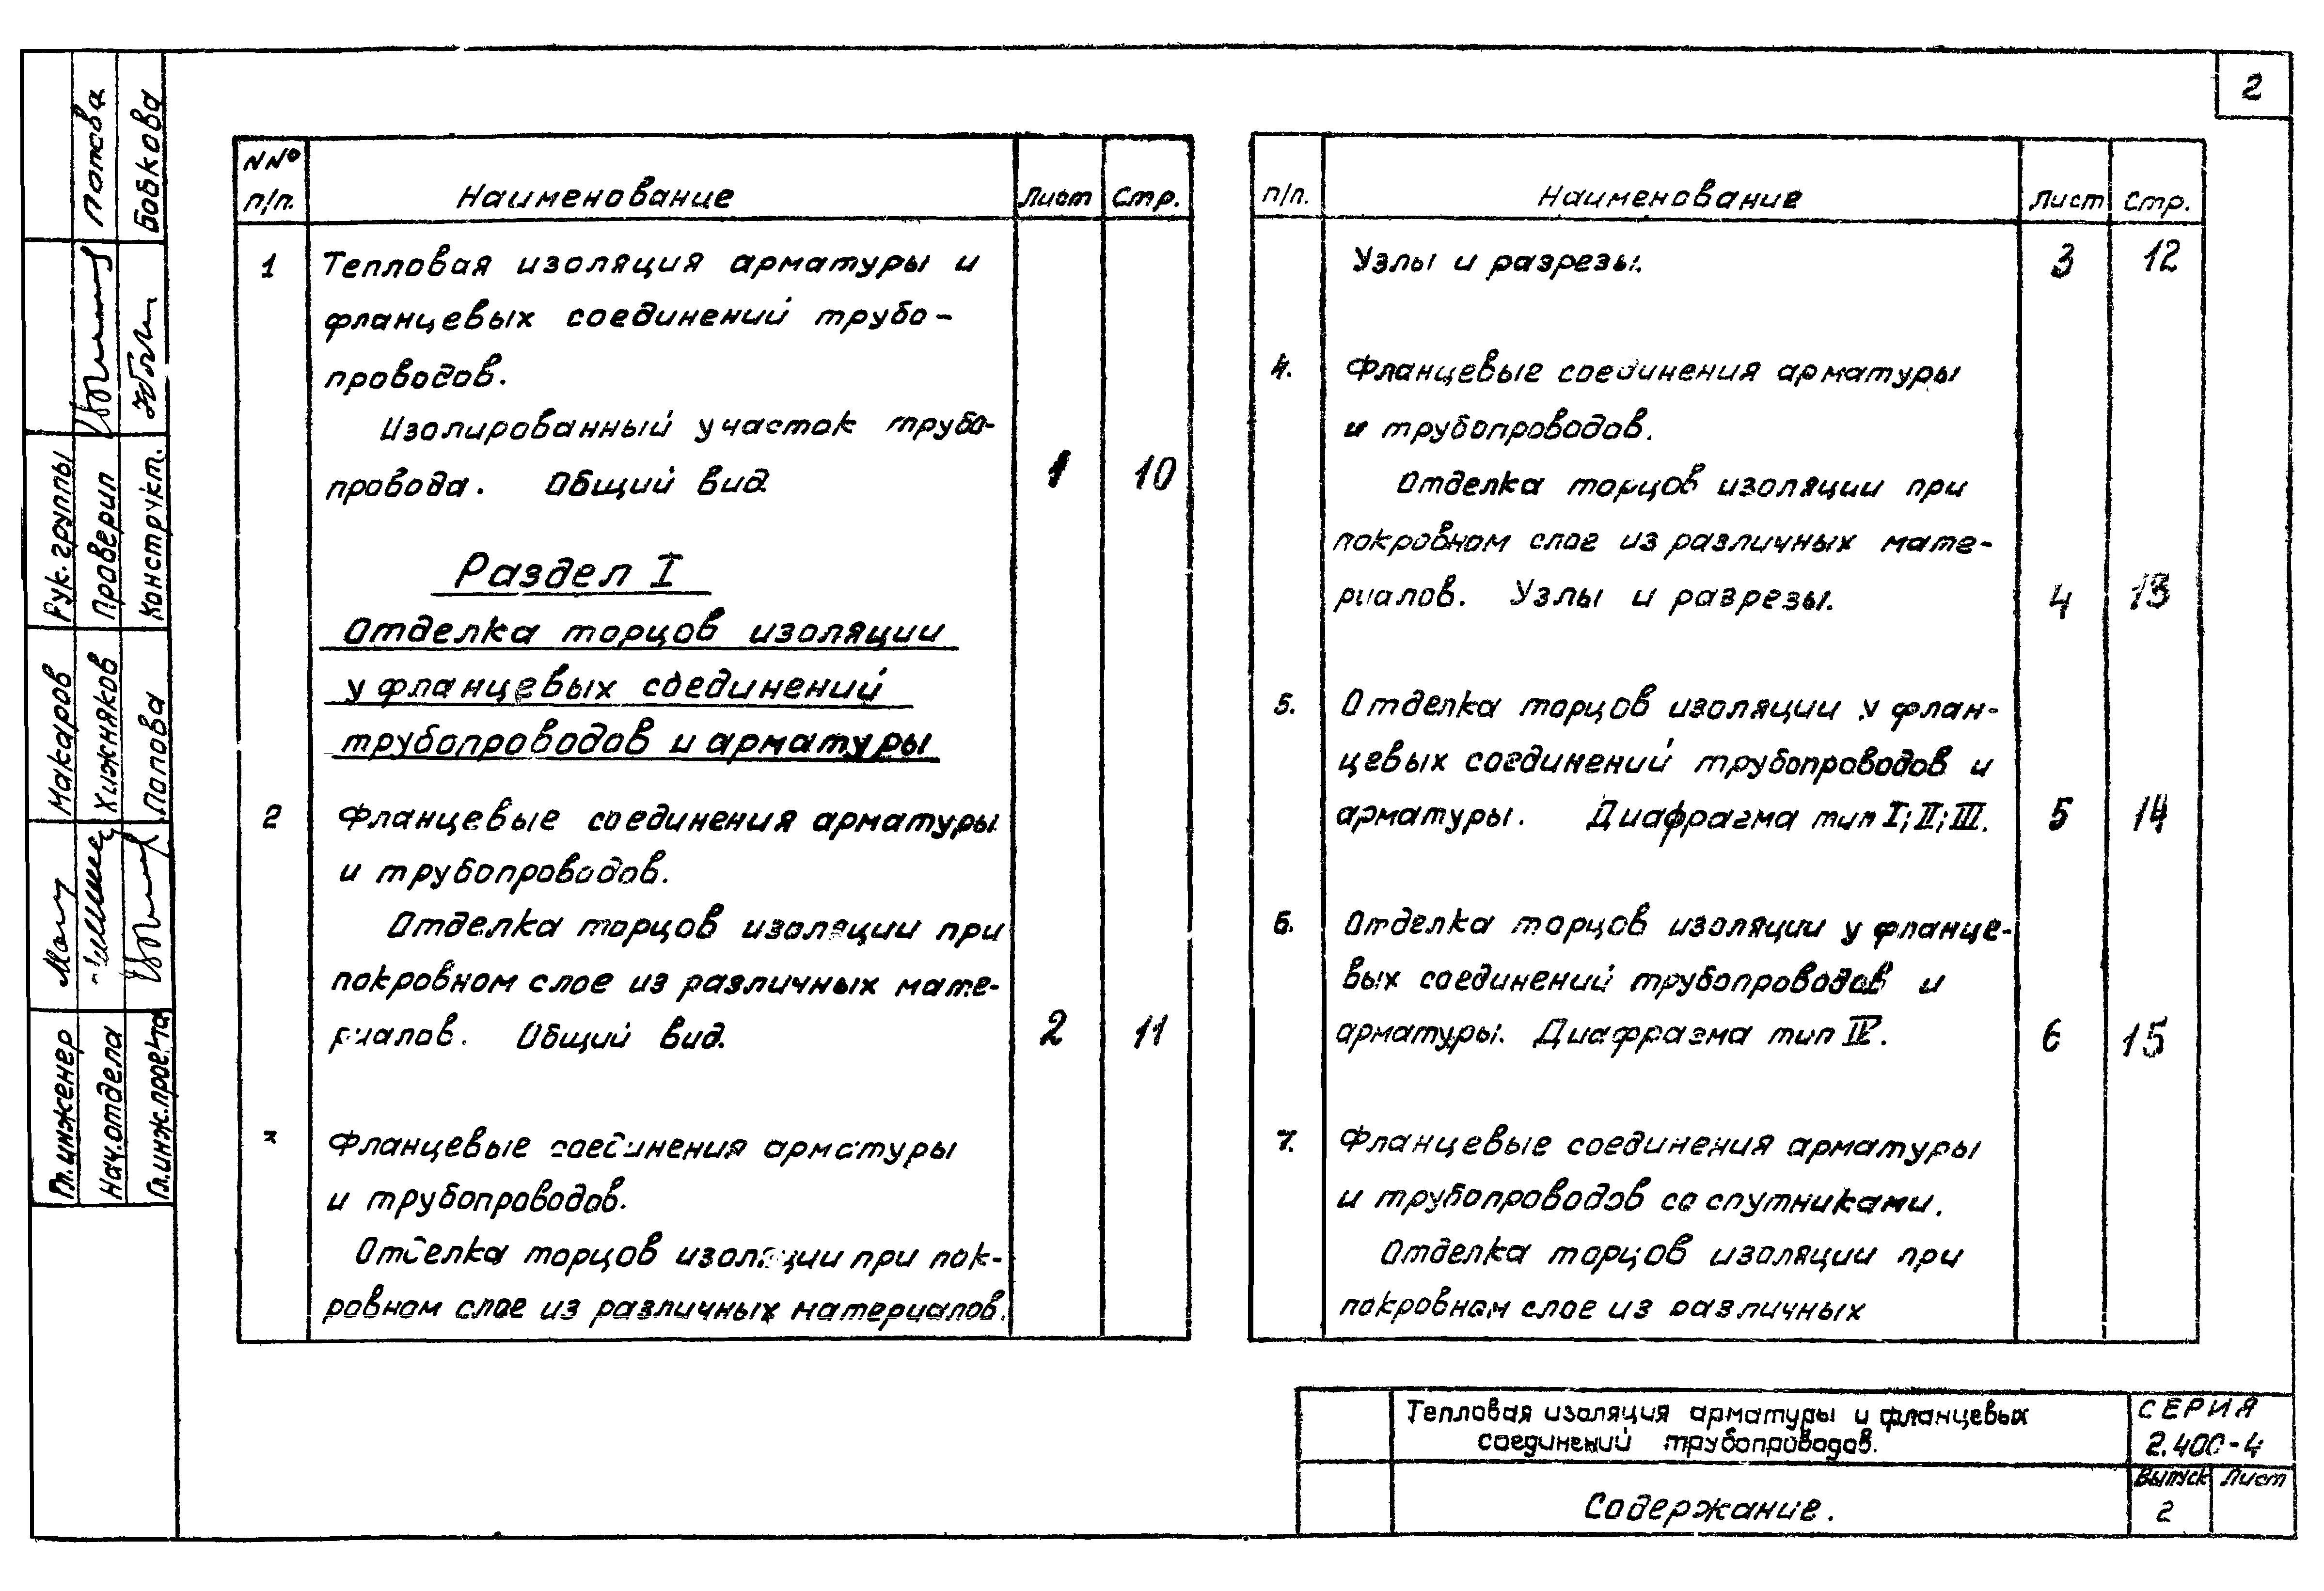 2
NNº
п/п. Наименование Лист Стр.
1 Тепловая изоляция арматуры и
фланцевых соединений трубо-
проводов.
Изолированный участок трубо-
провода. Общий вид 1 10
Раздел I
Отделка торцов изоляции
у фланцевых соединений
трубопроводов и арматуры
2 Фланцевые соединения арматуры
и трубопроводов.
Отделка торцов изоляции при
покровном слое из различных мате-
риалов. Общий вид. 2 11
3 Фланцевые соединения арматуры
и трубопроводов.
Отделка торцов изоляции при пок-
ровном слое из различных материалов.
п/п. Наименование Лист Стр.
Узлы и разрезы. 3 12
4. Фланцевые соединения арматуры
и трубопроводов.
Отделка торцов изоляции при
покровном слое из различных мате-
риалов. Узлы и разрезы. 4 13
5. Отделка торцов изоляции у флан-
цевых соединений трубопроводов и
арматуры. Диафрагма тип I; II; III. 5 14
6. Отделка торцов изоляции у фланце-
вых соединений трубопроводов и
арматуры. Диафрагма тип IV. 6 15
7. Фланцевые соединения арматуры
и трубопроводов со спутниками.
Отделка торцов изоляции при
покровном слое из различных
Гл.инженер Макаров Рук.группы
Нач.отдела Хижняков Проверил Попова
Гл.инж.проекта Попова Конструкт. Бобкова
Тепловая изоляция арматуры и фланцевых
соединений трубопроводов.
СЕРИЯ
2.400-4
Содержание.
Выпуск Лист
2